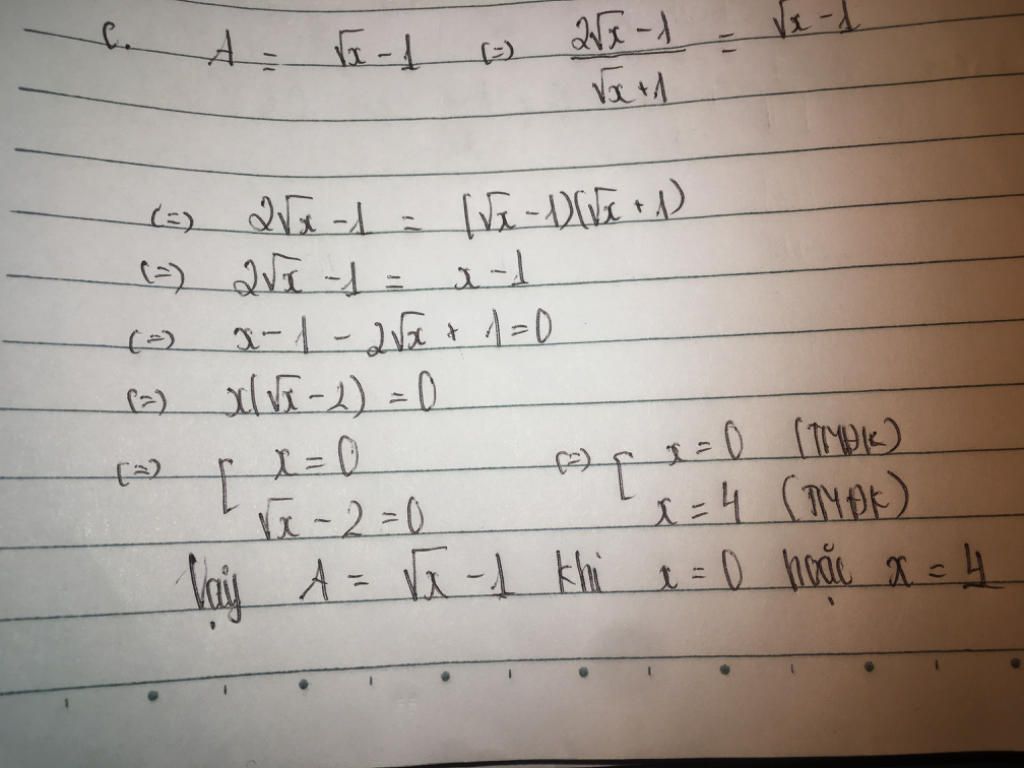 c. A = √x - 1 (=) (2√x - 1)/(√x + 1) = √x - 1
(=) 2√x - 1 = (√x - 1)(√x + 1)
(=) 2√x - 1 = x - 1
(=) x - 1 - 2√x + 1 = 0
(=) x(√x - 2) = 0
(=) [ x = 0 (=) [ x = 0 (TMĐK)
√x - 2 = 0 x = 4 (TMĐK)
Vậy A = √x - 1 khi x = 0 hoặc x = 4